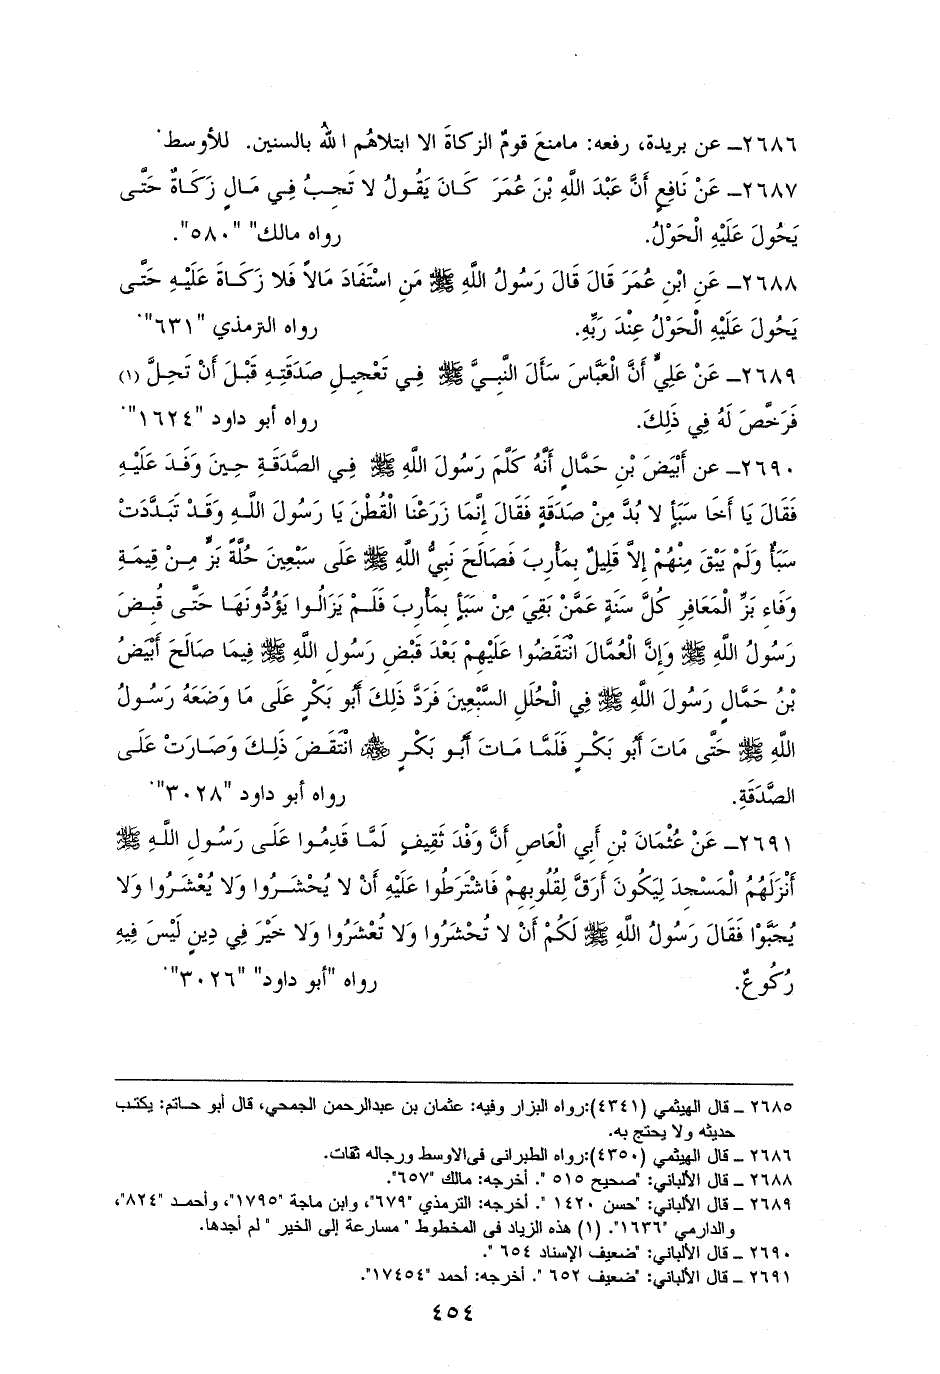 ٢٦٨٦ــ عن بريدة، رفعه: مامنعَ قومٌ الزكاةَ الا ابتلاهُم اللهُ بالسنين. للأوسط.
٢٦٨٧ــ عَنْ نَافِعٍ أَنَّ عَبْدَ اللَّهِ بْنَ عُمَرَ كَانَ يَقُولُ لا تَجِبُ فِي مَالٍ زَكَاةٌ حَتَّى
يَحُولَ عَلَيْهِ الْحَوْلُ. رواه مالك" "٥٨٠".
٢٦٨٨ــ عَنِ ابْنِ عُمَرَ قَالَ قَالَ رَسُولُ اللَّهِ ﷺ مَنِ اسْتَفَادَ مَالاً فَلا زَكَاةَ عَلَيْهِ حَتَّى
يَحُولَ عَلَيْهِ الْحَوْلُ عِنْدَ رَبِّهِ. رواه الترمذي "٦٣١".
٢٦٨٩ــ عَنْ عَلِيٍّ أَنَّ الْعَبَّاسَ سَأَلَ النَّبِيَّ ﷺ فِي تَعْجِيلِ صَدَقَتِهِ قَبْلَ أَنْ تَحِلَّ (١)
فَرَخَّصَ لَهُ فِي ذَلِكَ. رواه أبو داود "١٦٢٤".
٢٦٩٠ــ عن أَبْيَضَ بْنِ حَمَّالٍ أَنَّهُ كَلَّمَ رَسُولَ اللَّهِ ﷺ فِي الصَّدَقَةِ حِينَ وَفَدَ عَلَيْهِ
فَقَالَ يَا أَخَا سَبَأٍ لا بُدَّ مِنْ صَدَقَةٍ فَقَالَ إِنَّمَا زَرَعْنَا الْقُطْنَ يَا رَسُولَ اللَّهِ وَقَدْ تَبَدَّدَتْ
سَبَأٌ وَلَمْ يَبْقَ مِنْهُمْ إِلاَّ قَلِيلٌ بِمَأْرِبَ فَصَالَحَ نَبِيُّ اللَّهِ ﷺ عَلَى سَبْعِينَ حُلَّةً بَزٍّ مِنْ قِيمَةِ
وَفَاءِ بَزِّ الْمَعَافِرِ كُلَّ سَنَةٍ عَمَّنْ بَقِيَ مِنْ سَبَأٍ بِمَأْرِبَ فَلَمْ يَزَالُوا يَؤُدُّونَهَا حَتَّى قُبِضَ
رَسُولُ اللَّهِ ﷺ وَإِنَّ الْعُمَّالَ انْتَقَضُوا عَلَيْهِمْ بَعْدَ قَبْضِ رَسُولِ اللَّهِ ﷺ فِيمَا صَالَحَ أَبْيَضُ
بْنُ حَمَّالٍ رَسُولَ اللَّهِ ﷺ فِي الْحُلَلِ السَّبْعِينَ فَرَدَّ ذَلِكَ أَبُو بَكْرٍ عَلَى مَا وَضَعَهُ رَسُولُ
اللَّهِ ﷺ حَتَّى مَاتَ أَبُو بَكْرٍ فَلَمَّا مَاتَ أَبُو بَكْرٍ رضي الله عنه انْتَقَضَ ذَلِكَ وَصَارَتْ عَلَى
الصَّدَقَةِ. رواه أبو داود "٣٠٢٨".
٢٦٩١ــ عَنْ عُثْمَانَ بْنِ أَبِي الْعَاصِ أَنَّ وَفْدَ ثَقِيفٍ لَمَّا قَدِمُوا عَلَى رَسُولِ اللَّهِ ﷺ
أَنْزَلَهُمُ الْمَسْجِدَ لِيَكُونَ أَرَقَّ لِقُلُوبِهِمْ فَاشْتَرَطُوا عَلَيْهِ أَنْ لا يُحْشَرُوا وَلا يُعْشَرُوا وَلا
يُجَبَّوْا فَقَالَ رَسُولُ اللَّهِ ﷺ لَكُمْ أَنْ لا تُحْشَرُوا وَلا تُعْشَرُوا وَلا خَيْرَ فِي دِينٍ لَيْسَ فِيهِ
رُكُوعٌ. رواه "أبو داود" "٣٠٢٦".
٢٦٨٥ ــ قال الهيثمي (٤٣٤١):رواه البزار وفيه: عثمان بن عبدالرحمن الجمحي، قال أبو حاتم: يكتب
حديثه ولا يحتج به.
٢٦٨٦ ــ قال الهيثمي (٤٣٥٠):رواه الطبرانى فى الاوسط ورجاله ثقات.
٢٦٨٨ ــ قال الألباني: "صحيح ٥١٥ ". أخرجه: مالك "٦٥٧".
٢٦٨٩ ــ قال الألباني: "حسن ١٤٢٠ ". أخرجه: الترمذي "٦٧٩"، وابن ماجة "١٧٩٥"، وأحمد "٨٢٤"،
والدارمي "١٦٣٦". (١) هذه الزياد فى المخطوط " مسارعة إلى الخير " لم أجدها.
٢٦٩٠ ــ قال الألباني: "ضعيف الإسناد ٦٥٤ ".
٢٦٩١ ــ قال الألباني: "ضعيف ٦٥٢ ". أخرجه: أحمد "١٧٤٥٤".
٤٥٤